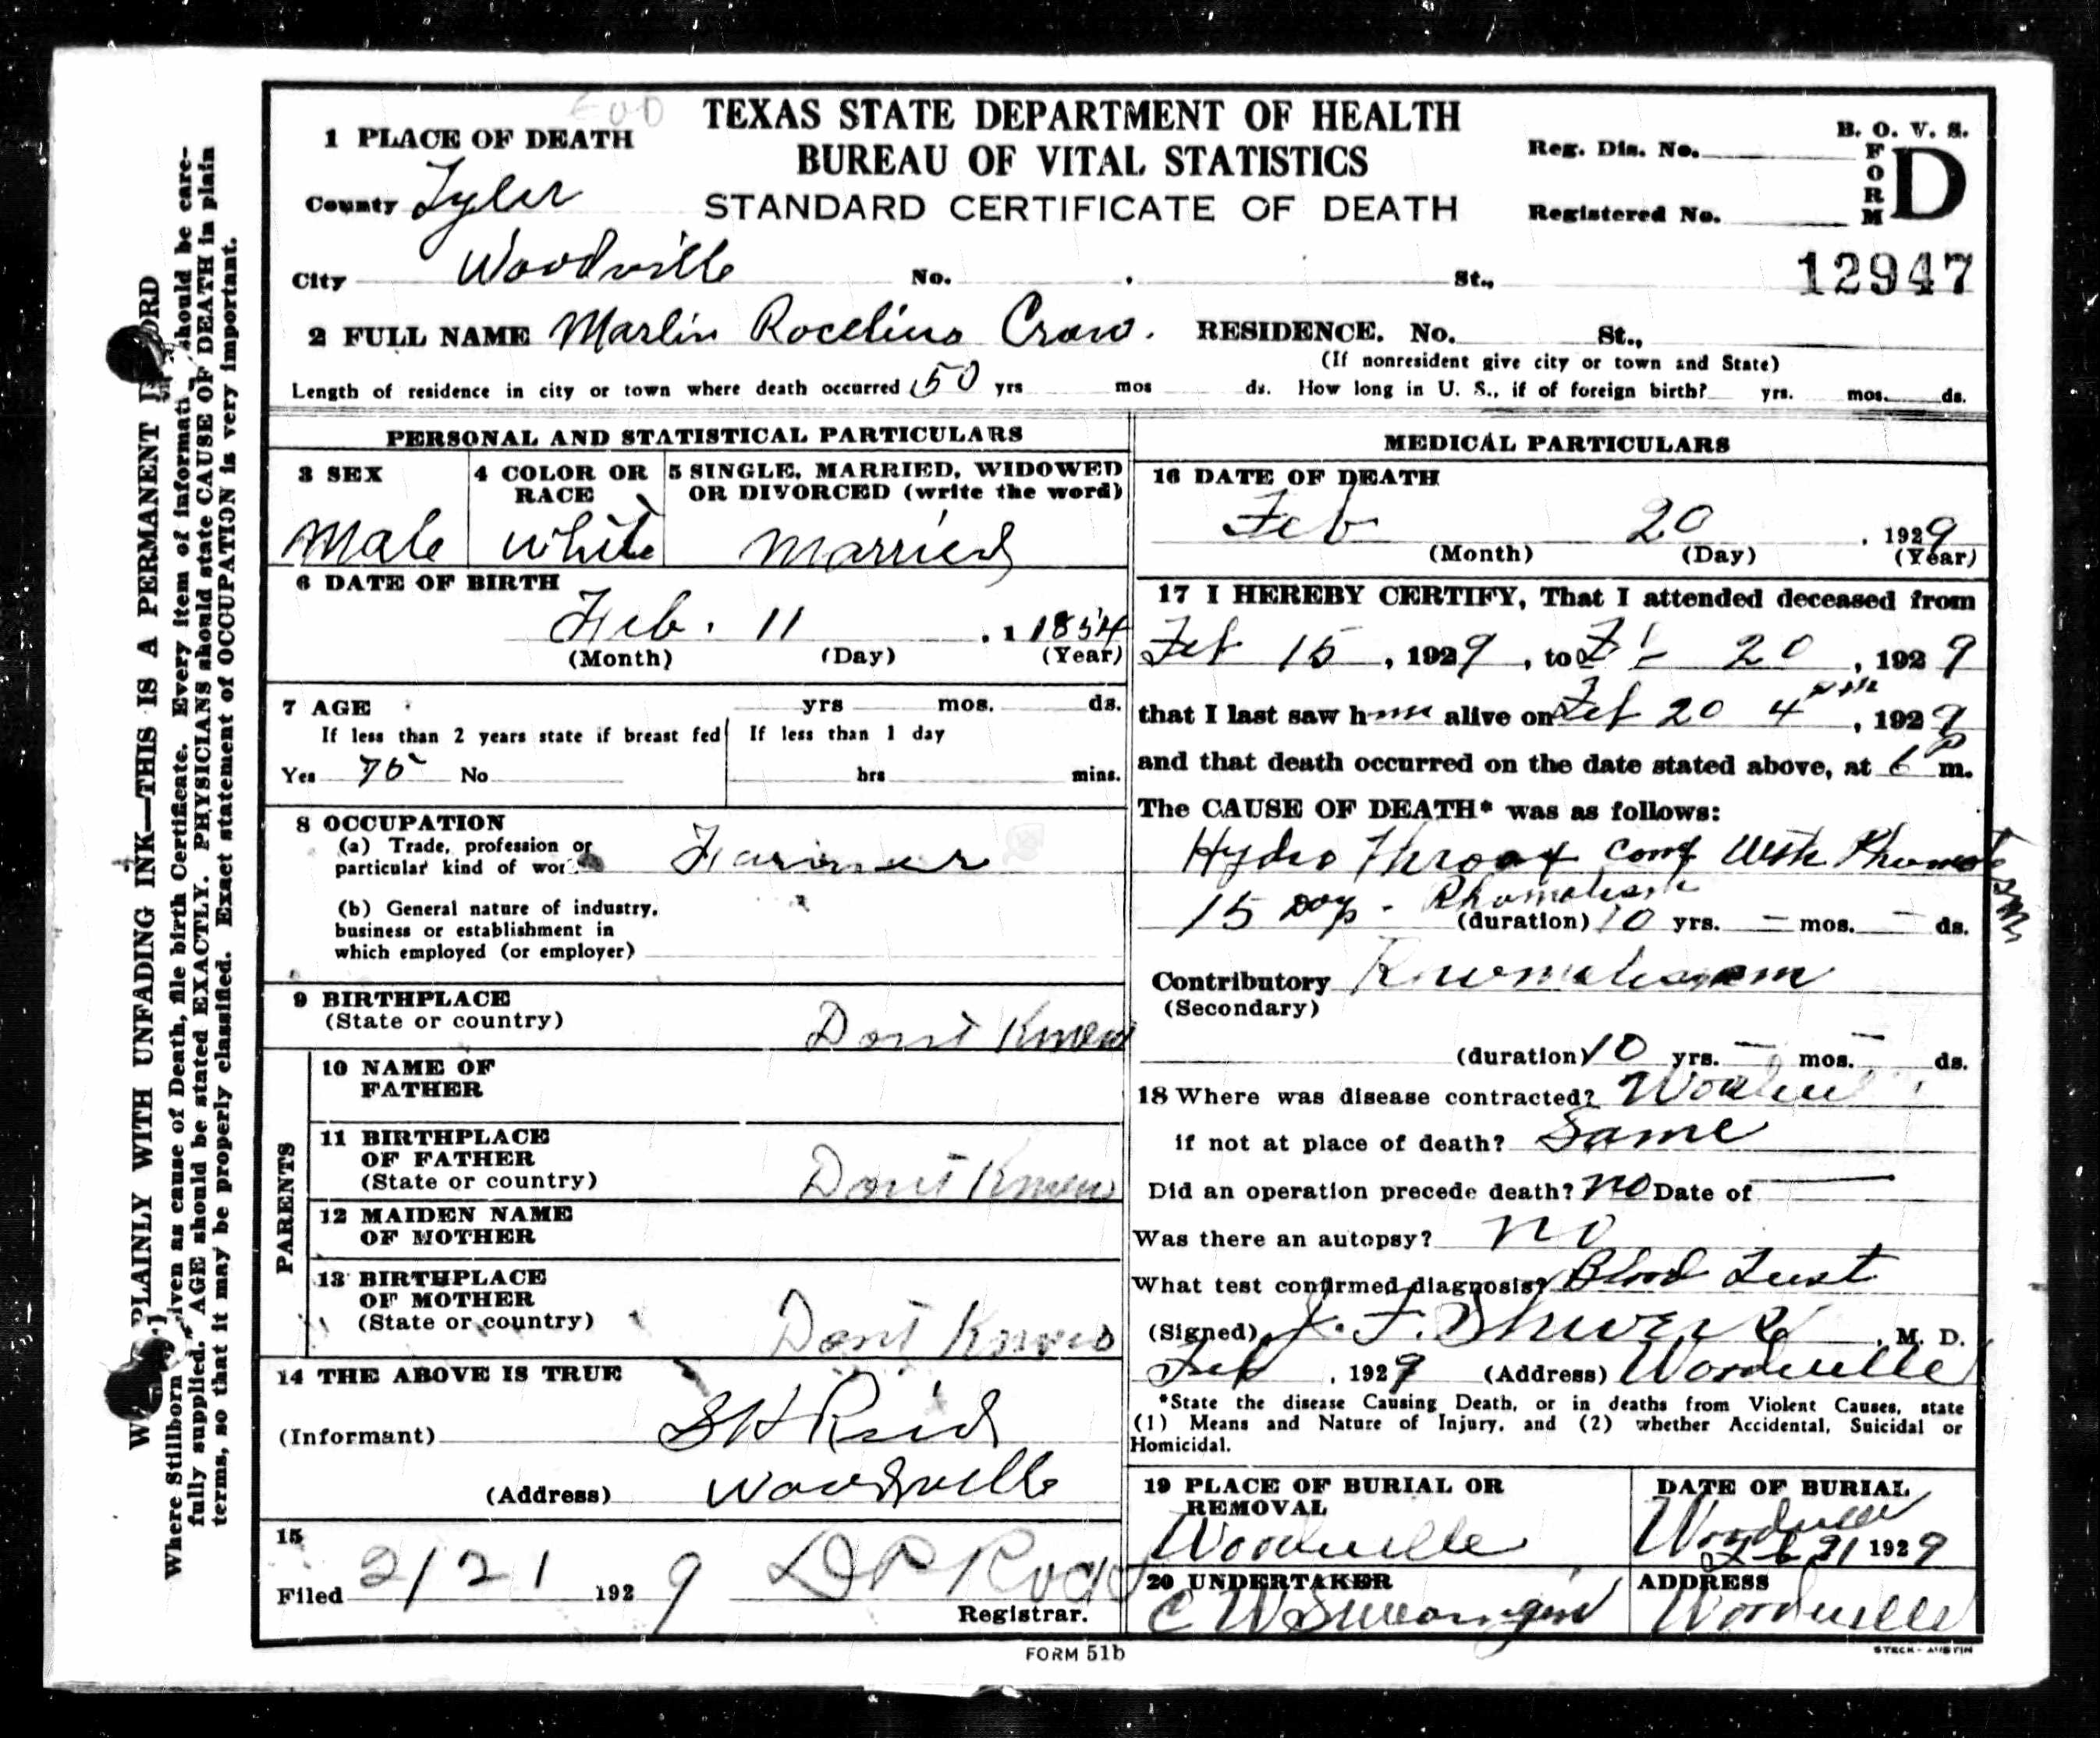 TEXAS STATE DEPARTMENT OF HEALTH
BUREAU OF VITAL STATISTICS
STANDARD CERTIFICATE OF DEATH
B. O. V. S.
FORM D
Reg. Dis. No.
Registered No.
12947
1 PLACE OF DEATH
County Tyler
City Woodville No. St.,
2 FULL NAME Marlin Rocelius Craw. RESIDENCE. No. St.,
(If nonresident give city or town and State)
Length of residence in city or town where death occurred 50 yrs mos ds. How long in U. S., if of foreign birth? yrs. mos. ds.
PERSONAL AND STATISTICAL PARTICULARS
3 SEX
Male
4 COLOR OR RACE
White
5 SINGLE, MARRIED, WIDOWED
OR DIVORCED (write the word)
Married
6 DATE OF BIRTH
Feb. 11 , 1 1854
(Month) (Day) (Year)
7 AGE yrs mos. ds.
If less than 2 years state if breast fed
Yes 75 No
If less than 1 day
hrs mins.
8 OCCUPATION
(a) Trade, profession or
particular kind of work Farmer
(b) General nature of industry,
business or establishment in
which employed (or employer)
9 BIRTHPLACE
(State or country) Don't Know
PARENTS
10 NAME OF
FATHER
11 BIRTHPLACE
OF FATHER
(State or country) Don't Know
12 MAIDEN NAME
OF MOTHER
13 BIRTHPLACE
OF MOTHER
(State or country) Don't Know
14 THE ABOVE IS TRUE
(Informant) S H Reid
(Address) Woodville
15
Filed 2/21 1929 D P
Registrar.
MEDICAL PARTICULARS
16 DATE OF DEATH
Feb 20 , 1929
(Month) (Day) (Year)
17 I HEREBY CERTIFY, That I attended deceased from
Feb 15 , 1929 , to 20 , 1929
that I last saw him alive on Feb 20 4 pm , 1929
and that death occurred on the date stated above, at 6 P m.
The CAUSE OF DEATH* was as follows:
Hydro Throat Comp With
15 Days - (duration) 10 yrs. - mos. - ds.
Contributory
(Secondary)
(duration) 10 yrs. - mos. - ds.
18 Where was disease contracted?
if not at place of death? Same
Did an operation precede death? no Date of
Was there an autopsy? no
What test confirmed diagnosis? Blood Test
(Signed) J. F. , M. D.
Feb , 1929 (Address) Woodville
*State the disease Causing Death, or in deaths from Violent Causes, state
(1) Means and Nature of Injury, and (2) whether Accidental, Suicidal or
Homicidal.
19 PLACE OF BURIAL OR
REMOVAL
Woodville
DATE OF BURIAL
Woodville
Feb 21 1929
20 UNDERTAKER
C W
ADDRESS
Woodville
FORM 51b
STECK - AUSTIN
PLAINLY WITH UNFADING INK—THIS IS A PERMANENT
Where Stillborn given as cause of Death, file birth Certificate. Every item of information should be care-
fully supplied. AGE should be stated EXACTLY. PHYSICIANS should state CAUSE OF DEATH in plain
terms, so that it may be properly classified. Exact statement of OCCUPATION is very important.